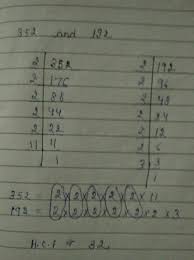 352 and 192
2 | 352 2 | 192
2 | 176 2 | 96
2 | 88 2 | 48
2 | 44 2 | 24
2 | 22 2 | 12
11 | 11 2 | 6
1 3 | 3
1
352 = 2×2×2×2×2×11
192 = 2×2×2×2×2×2×3
H.C.F = 32